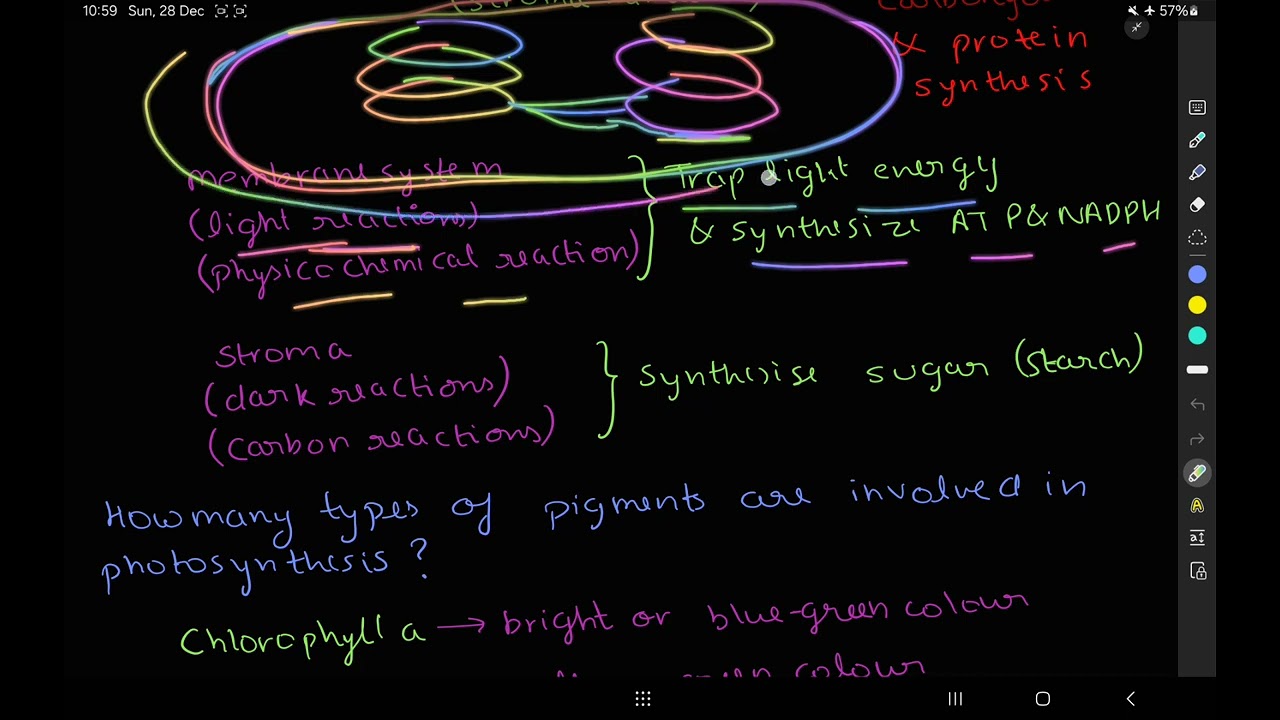 10:59 Sun, 28 Dec
57%
& protein
synthesis
membrane system
(light reactions)
(physico chemical reaction)
Trap light energy
& synthesize ATP & NADPH
stroma
(dark reactions)
(carbon reactions)
synthesise sugar (starch)
How many types of pigments are involved in
photosynthesis?
Chlorophyll a → bright or blue-green colour
green colour